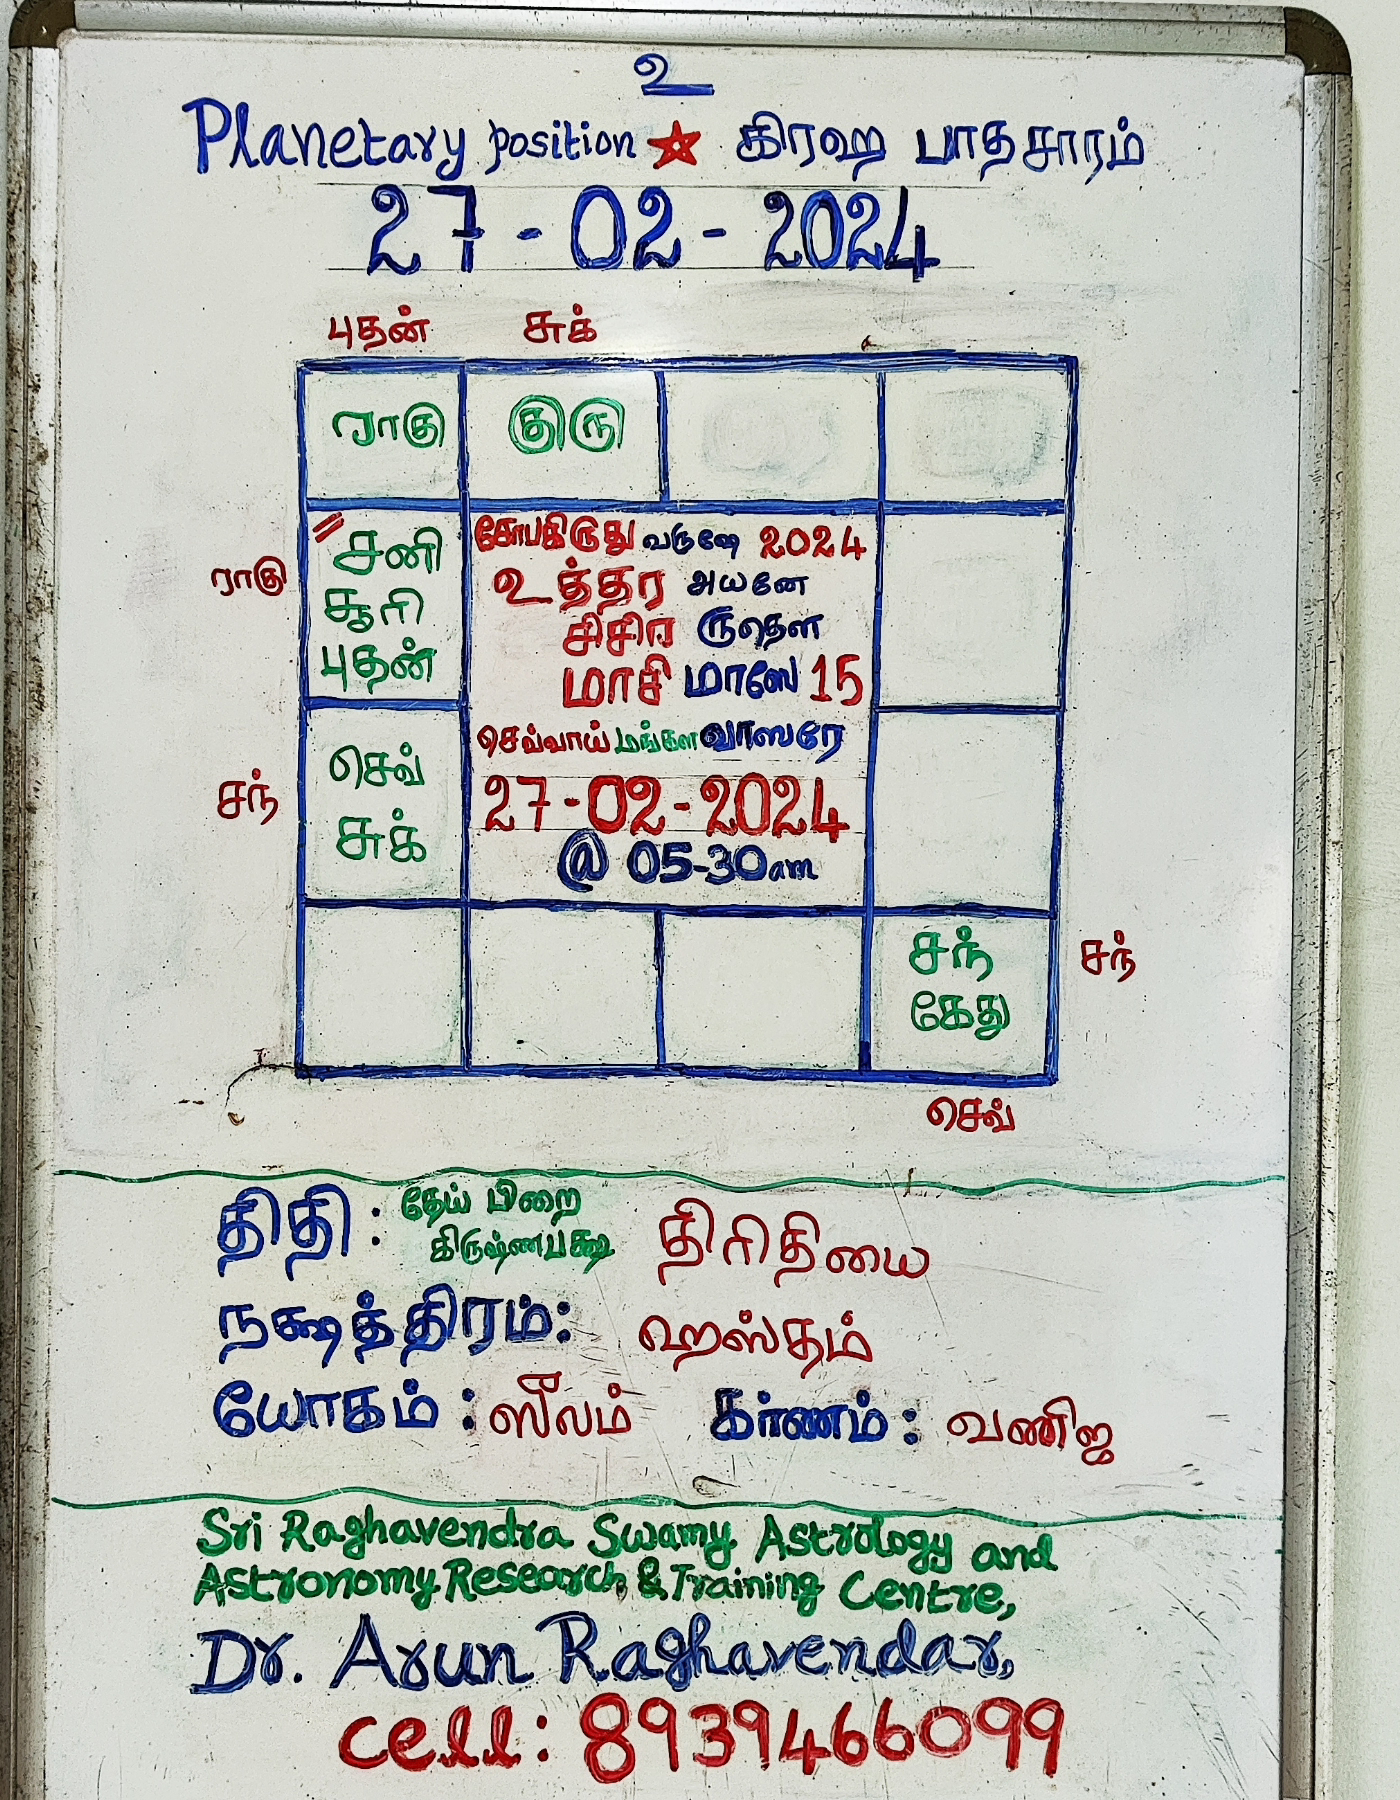 உ
Planetary position ★ கிரஹ பாதசாரம்
27-02-2024
புதன் சுக்
ராகு குரு
ராகு
சனி
சூரி
புதன்
சோபகிருது வருஷே 2024
உத்தர அயனே
சிசிர ருதௌ
மாசி மாஸே 15
செவ்வாய் மங்கள வாஸரே
27-02-2024
@ 05-30am
சந்
செவ்
சுக்
சந்
கேது
சந்
செவ்
திதி : தேய் பிறை கிருஷ்ணபக்ஷ திரிதியை
நக்ஷத்திரம்: ஹஸ்தம்
யோகம் : ஸீலம் கர்ணம் : வணிஜ
Sri Raghavendra Swamy Astrology and
Astronomy Research & Training Centre,
Dr. Arun Raghavendar,
cell: 8939466099